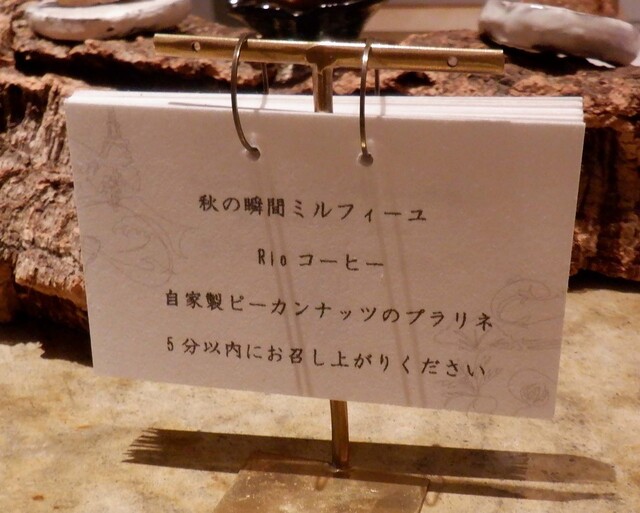 秋の瞬間ミルフィーユ
Rio コーヒー
自家製ピーカンナッツのプラリネ
5分以内にお召し上がりください